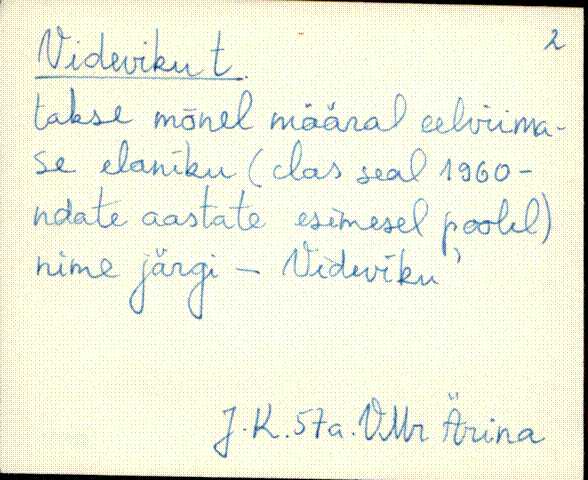 2
Videviku t.
takse mõnel määral eelviima-
se elaniku (elas seal 1960-
ndate aastate esimesel poolel)
nime järgi – Videviku'
J.K. 57a. VMr Ärina